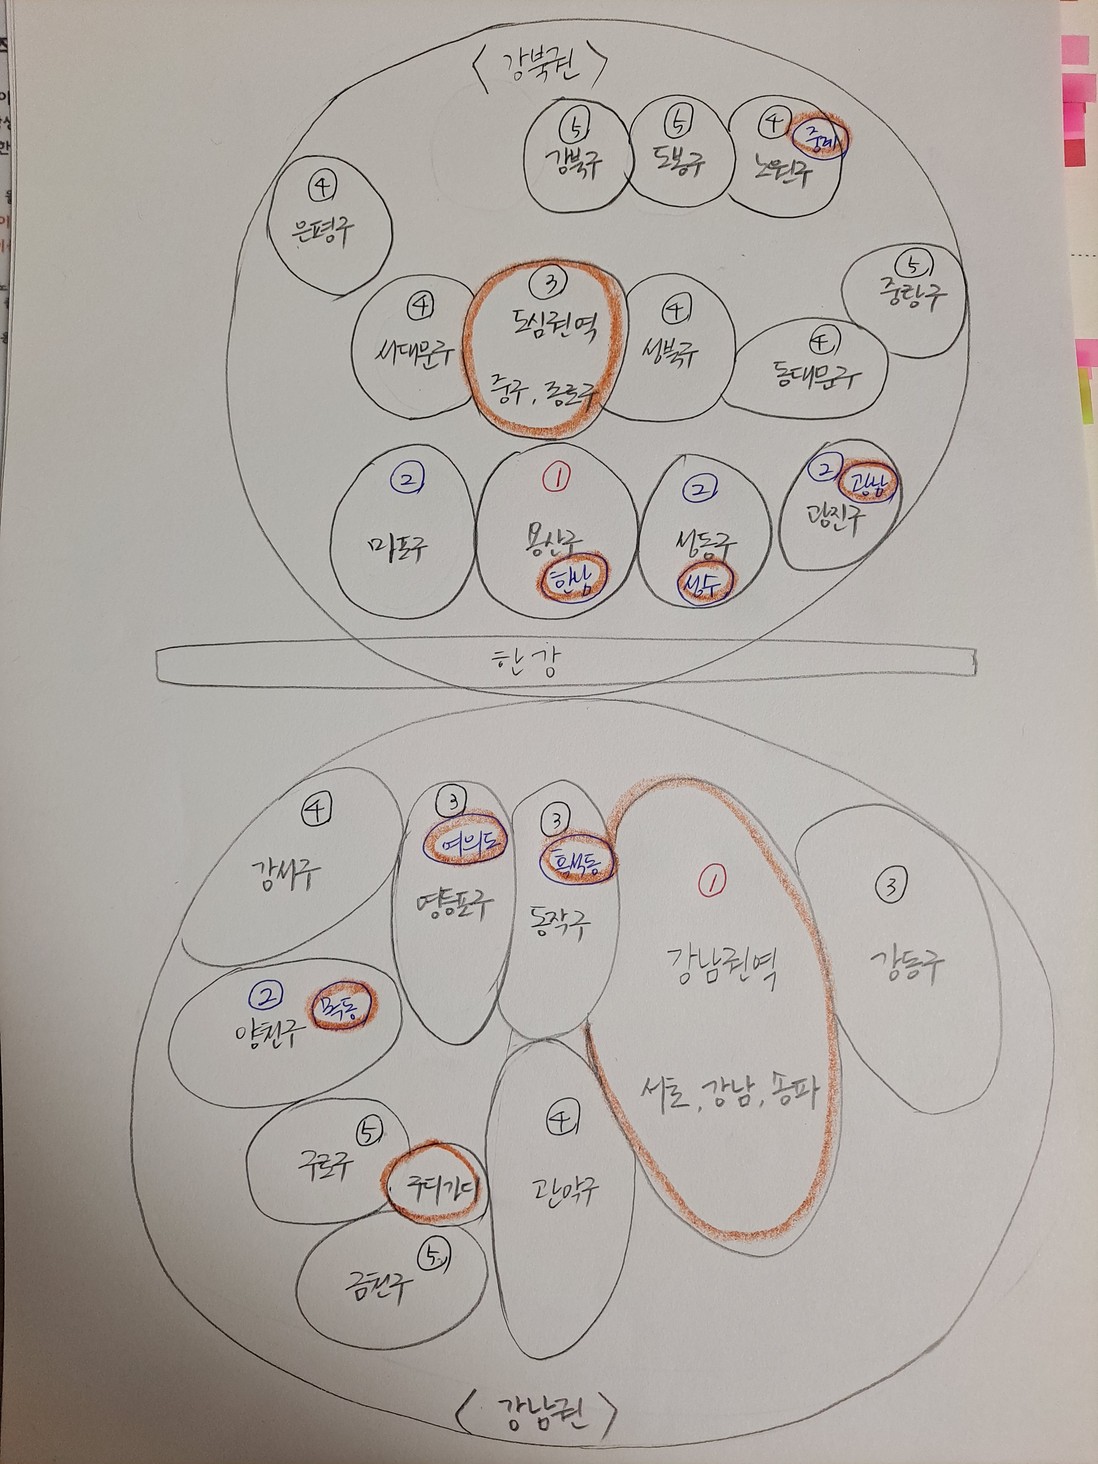 〈강북권〉
⑤
강북구
⑤
도봉구
④
중계
노원구
④
은평구
⑤
중랑구
④
서대문구
③
도심권역
중구, 종로구
④
성북구
④
동대문구
②
마포구
①
용산구
한남
②
성동구
성수
②
광남
광진구
한강
④
강서구
③
여의도
영등포구
③
흑석동
동작구
①
강남권역
서초, 강남, 송파
③
강동구
②
목동
양천구
⑤
구로구
구디가디
④
관악구
⑤
금천구
〈강남권〉